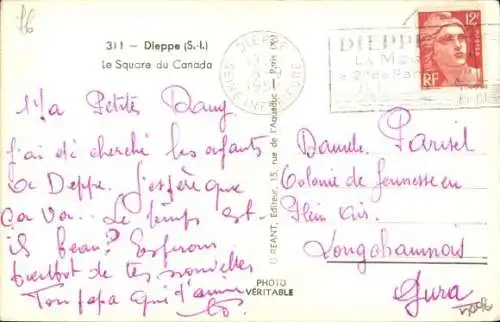 311 - Dieppe (S.-I.)
Le Square du Canada
DIEPPE
1951
SEINE INFERIEURE
DIEPPE
LA
à 2h de Paris
12F
POSTES
RF
Ma Petite Dany
J'ai été cherché les enfants
à Deppe. J'espère que
ça va.. Le temps est-
il beau? Espérons
de tes nouvelles
Ton papa qui t'aime
REANT, Editeur, 15, rue de l'Aqueduc - Paris
PHOTO
VÉRITABLE
Parisel
Colonie de Jeunesse en
Plein Air.
Longchaumois
Jura